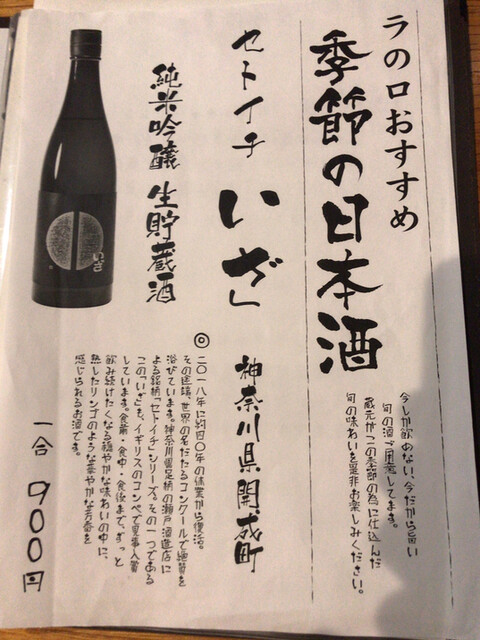 ラの口おすすめ
季節の日本酒
今しか飲めない、今だから旨い
旬の酒ご用意してます。
蔵元がこの季節の為に仕込んだ
旬の味わいを是非お楽しみください。
セトイチ いざ」
神奈川県開成町
純米吟醸 生貯蔵酒
◎二〇一八年に約四〇年の休業から復活。
その直後、世界の名だたるコンクールで絶賛を
浴びています。神奈川県足柄の瀬戸酒造店に
よる銘柄「セトイチ」シリーズ。その一つである
この「いざ」も、イギリスのコンペで見事入賞
しています。食前・食中・食後まで、ずっと
飲み続けたくなる穏やかな味わいの中に、
熟したリンゴのような華やかな芳香を
感じられるお酒です。
一合 900円
いざ